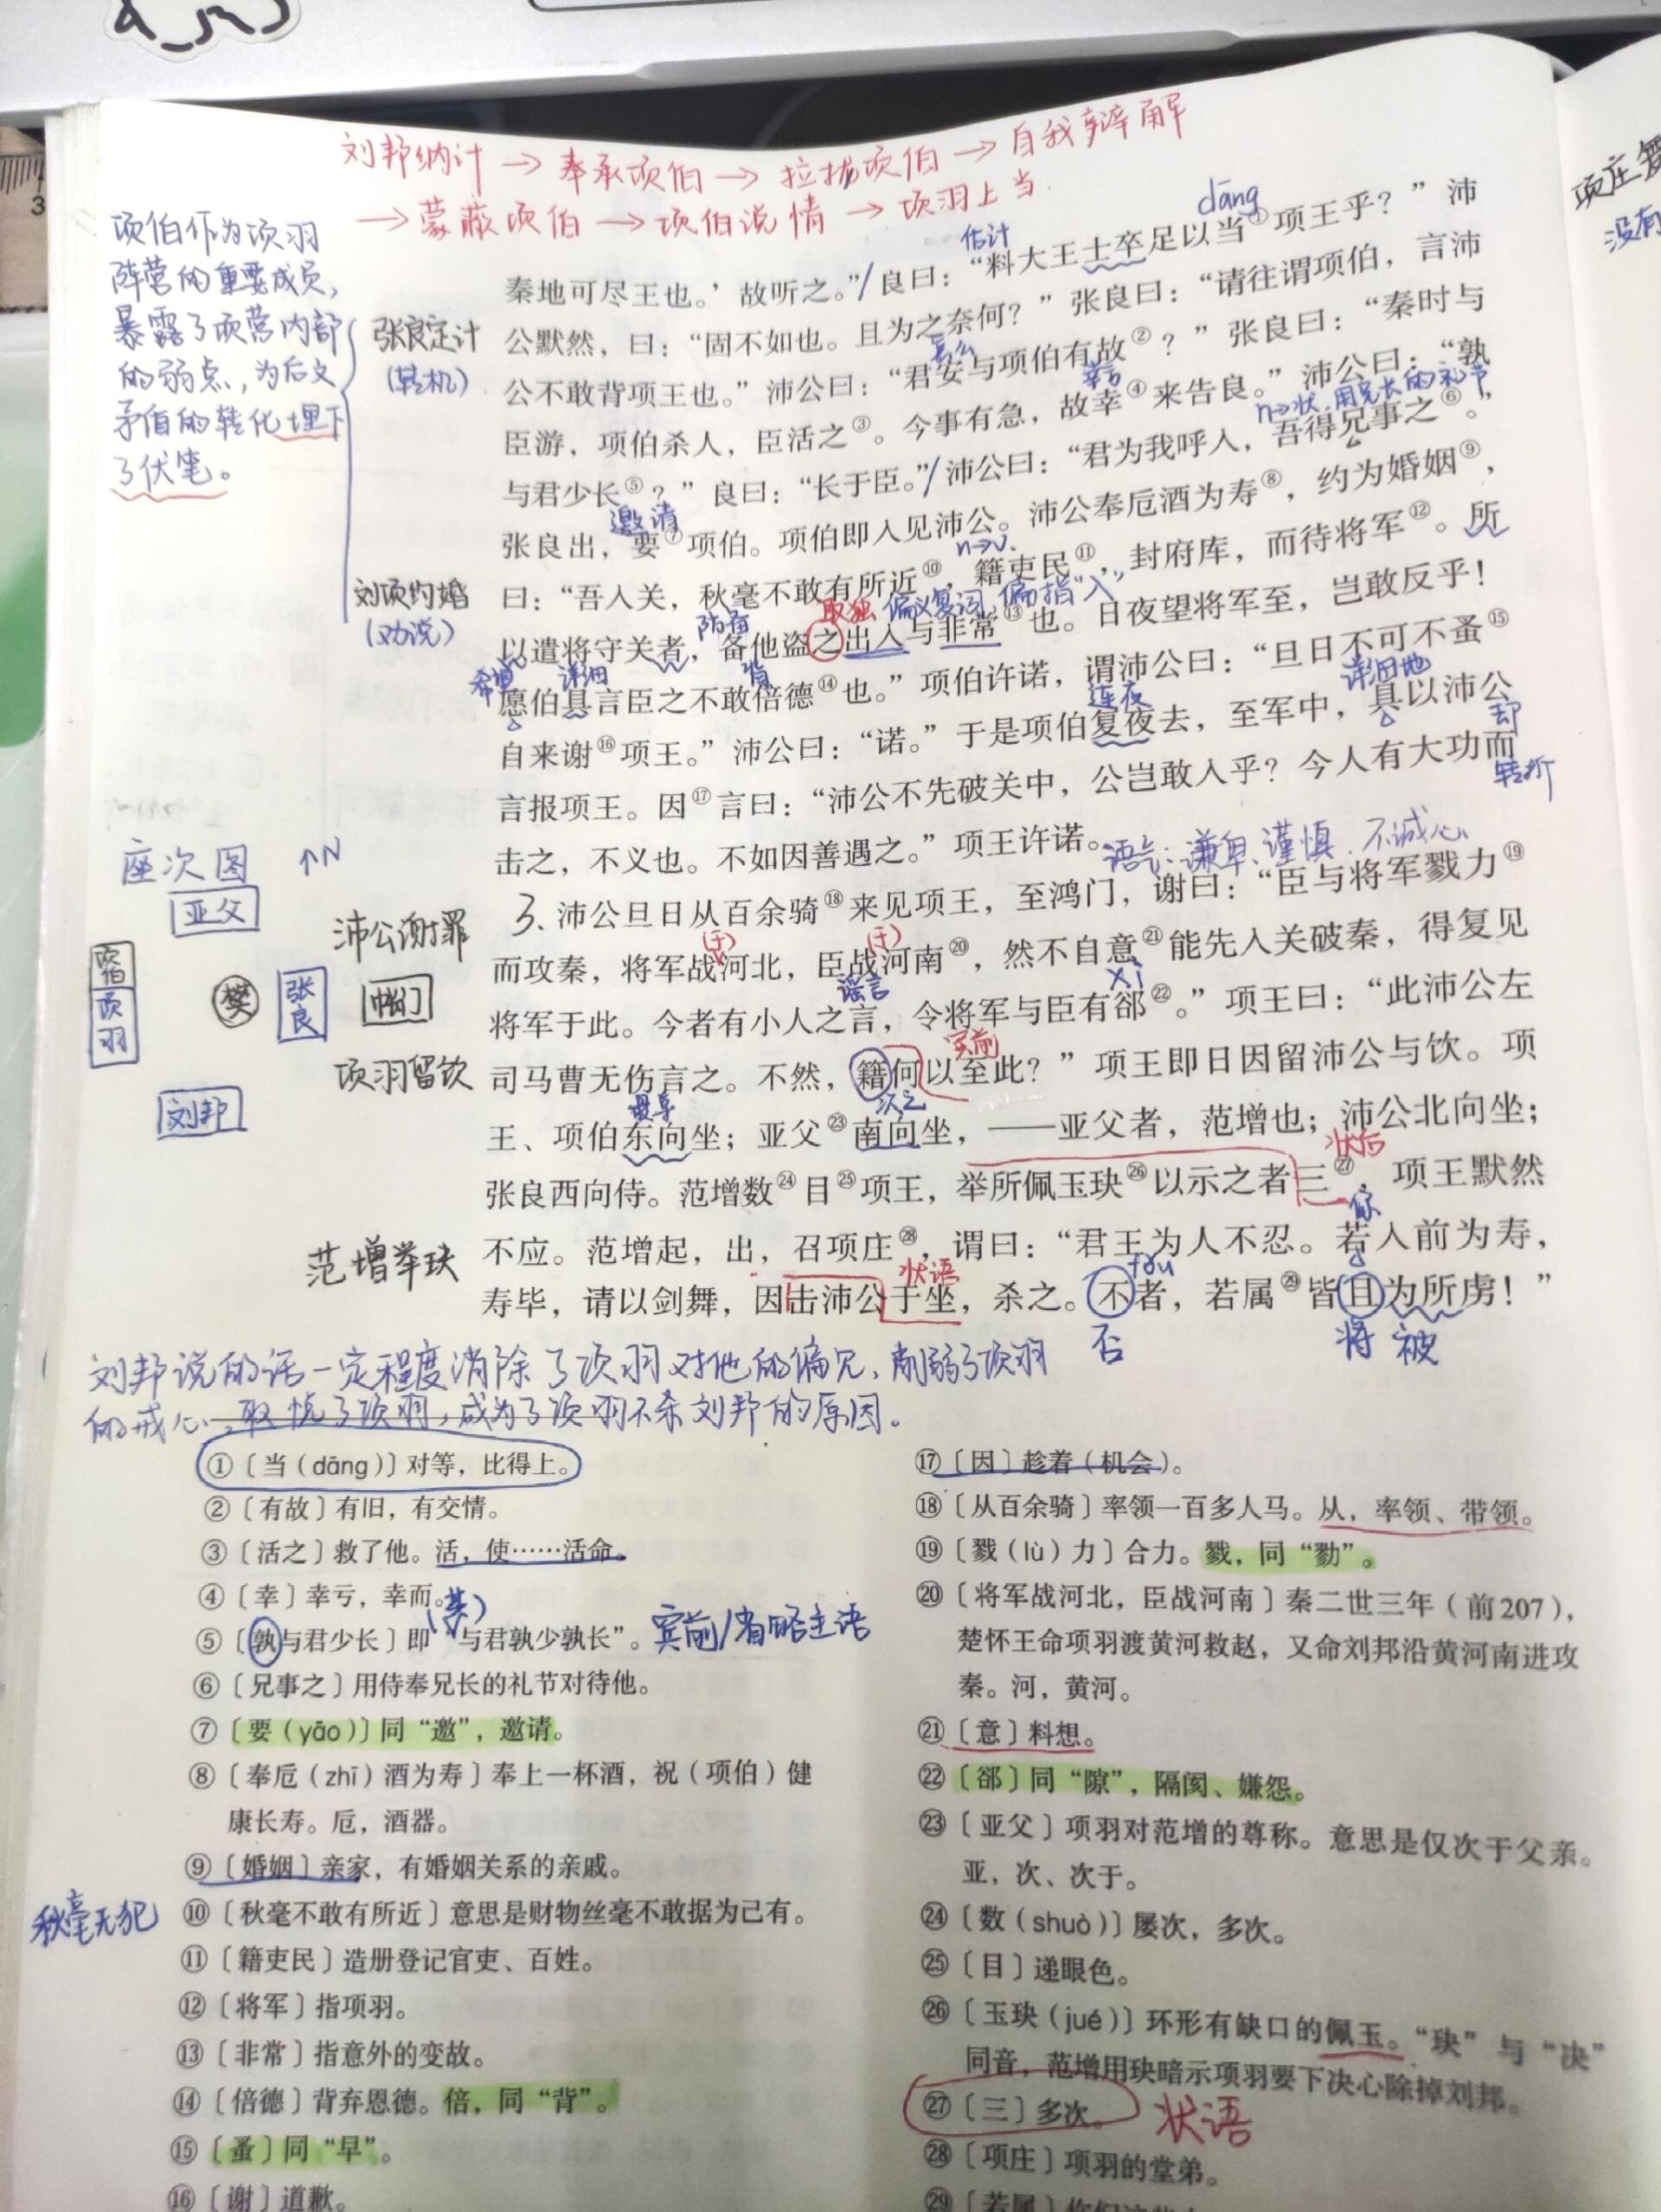 刘邦纳计→奉承项伯→拉拢项伯→自我辩解
→蒙蔽项伯→项伯说情→项羽上当.
项伯作为项羽
阵营的重要成员,
暴露了项营内部
的弱点,为后文
矛盾的转化埋下
了伏笔。
张良定计
(转机)
刘项约婚
(劝说)
dāng
估计
秦地可尽王也。’故听之。”/良曰：“料大王士卒足以当①项王乎？”沛
公默然，曰：“固不如也。且为之奈何？”张良曰：“请往谓项伯，言沛
怎么
公不敢背项王也。”沛公曰：“君安与项伯有故②？”张良曰：“秦时与
幸亏
臣游，项伯杀人，臣活之③。今事有急，故幸④来告良。”沛公曰：“孰
n→状.用兄长的礼节
与君少长⑤？”良曰：“长于臣。”/沛公曰：“君为我呼入，吾得兄事之⑥。”
邀请
张良出，要⑦项伯。项伯即入见沛公。沛公奉卮酒为寿⑧，约为婚姻⑨，
n→v.
曰：“吾入关，秋毫不敢有所近⑩，籍吏民⑪，封府库，而待将军⑫。所
防备
取独 偏义复词 偏指“入”
以遣将守关者，备他盗之出入与非常⑬也。日夜望将军至，岂敢反乎！
希望
详细
背
愿伯具言臣之不敢倍德⑭也。”项伯许诺，谓沛公曰：“旦日不可不蚤⑮
连夜
详细地
自来谢⑯项王。”沛公曰：“诺。”于是项伯复夜去，至军中，具以沛公
却
言报项王。因⑰言曰：“沛公不先破关中，公岂敢入乎？今人有大功而
转折
击之，不义也。不如因善遇之。”项王许诺。
语气：谦卑、谨慎.不诚心
3.沛公旦日从百余骑⑱来见项王，至鸿门，谢曰：“臣与将军戮力⑲
(于)
(于)
而攻秦，将军战河北，臣战河南⑳，然不自意㉑能先入关破秦，得复见
谣言
xì
将军于此。今者有小人之言，令将军与臣有郤㉒。”项王曰：“此沛公左
宾前
司马曹无伤言之。不然，籍何以至此？”项王即日因留沛公与饮。项
最尊
次之
王、项伯东向坐；亚父㉓南向坐，——亚父者，范增也；沛公北向坐；
状后
张良西向侍。范增数㉔目㉕项王，举所佩玉玦㉖以示之者三㉗，项王默然
你
不应。范增起，出，召项庄㉘，谓曰：“君王为人不忍。若入前为寿，
状语
fǒu
寿毕，请以剑舞，因击沛公于坐，杀之。不者，若属㉙皆且为所虏！”
否
将 被
座次图 ↑N
亚父
项伯
项羽
樊
张良
帐门
刘邦
沛公谢罪
项羽留饮
范增举玦
刘邦说的话一定程度消除了项羽对他的偏见,削弱了项羽
的戒心,取悦了项羽,成为了项羽不杀刘邦的原因。
①〔当（dāng）〕对等，比得上。
②〔有故〕有旧，有交情。
③〔活之〕救了他。活，使……活命。
④〔幸〕幸亏，幸而。
(其)
⑤〔孰与君少长〕即“与君孰少孰长”。宾前/省略主语
⑥〔兄事之〕用侍奉兄长的礼节对待他。
⑦〔要（yāo）〕同“邀”，邀请。
⑧〔奉卮（zhī）酒为寿〕奉上一杯酒，祝（项伯）健
康长寿。卮，酒器。
⑨〔婚姻〕亲家，有婚姻关系的亲戚。
秋毫无犯
⑩〔秋毫不敢有所近〕意思是财物丝毫不敢据为己有。
⑪〔籍吏民〕造册登记官吏、百姓。
⑫〔将军〕指项羽。
⑬〔非常〕指意外的变故。
⑭〔倍德〕背弃恩德。倍，同“背”。
⑮〔蚤〕同“早”。
⑯〔谢〕道歉。
⑰〔因〕趁着（机会）。
⑱〔从百余骑〕率领一百多人马。从，率领、带领。
⑲〔戮（lù）力〕合力。戮，同“勠”。
⑳〔将军战河北，臣战河南〕秦二世三年（前207），
楚怀王命项羽渡黄河救赵，又命刘邦沿黄河南进攻
秦。河，黄河。
㉑〔意〕料想。
㉒〔郤〕同“隙”，隔阂、嫌怨。
㉓〔亚父〕项羽对范增的尊称。意思是仅次于父亲。
亚，次、次于。
㉔〔数（shuò）〕屡次，多次。
㉕〔目〕递眼色。
㉖〔玉玦（jué）〕环形有缺口的佩玉。“玦”与“决”
同音，范增用玦暗示项羽要下决心除掉刘邦。
㉗〔三〕多次。 状语
㉘〔项庄〕项羽的堂弟。
㉙〔若属〕
项庄
没有
3